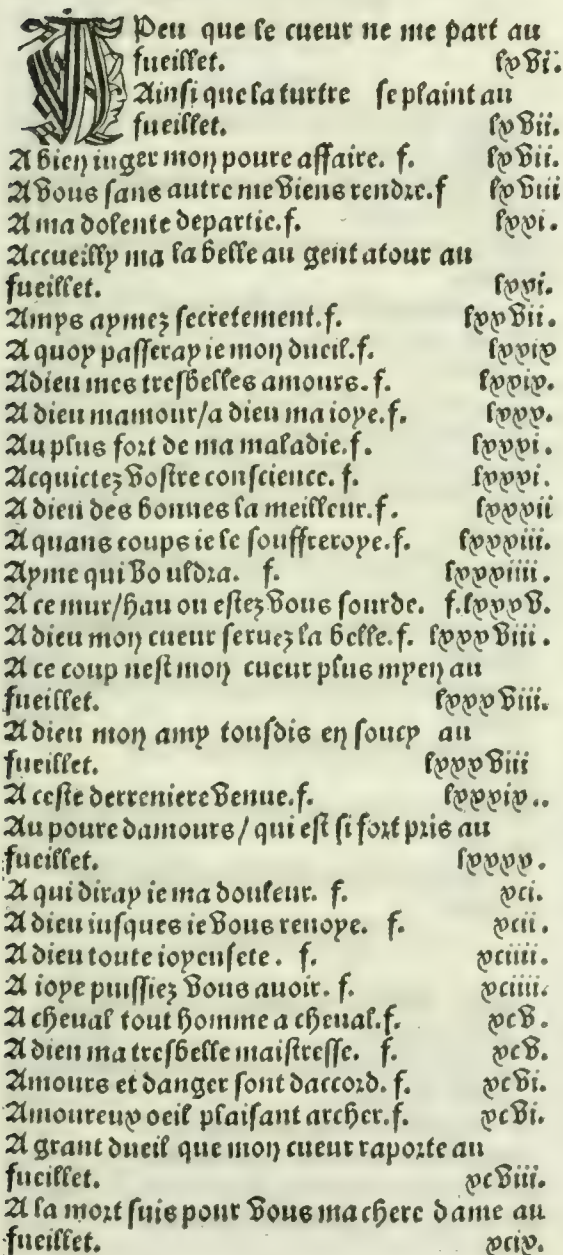 A Peu que le cueur ne me part au
fueillet. lxvi.
Ainsi que la turtre se plaint au
fueillet. lxvii.
A bien iuger mon poure affaire. f. lxvii.
A vous sans autre me viens rendre.f lxviii
A ma dolente departie.f. lxxi.
Accueilly ma la belle au gent atour au
fueillet. lxxi.
Amys aymez secretement.f. lxxvii.
A quoy passeray ie mon dueil.f. lxxix
Adieu mes tresbelles amours.f. lxxix.
A dieu mamour/a dieu ma ioye.f. lxxx.
Au plus fort de ma maladie.f. lxxxi.
Acquictez vostre conscience. f. lxxxi.
A dieu des bonnes la meilleur.f. lxxxii
A quans coups ie le souffreroye.f. lxxxiii.
Ayme qui vouldra. f. lxxxiiii.
A ce mur/hau ou estez vous sourde. f.lxxxv.
A dieu mon cueur seruez la belle.f. lxxxviii.
A ce coup nest mon cueur plus myen au
fueillet. lxxxviii.
A dieu mon amy tousdis en soucy au
fueillet. lxxxviii
A ceste derreniere venue.f. lxxxix..
Au poure damours/ qui est si fort pris au
fueillet. lxxxx.
A qui diray ie ma douleur. f. xci.
A dieu iusques ie vous reuoye. f. xcii.
A dieu toute ioyeusete. f. xciiii.
A ioye puissiez vous auoir. f. xciiii.
A cheual tout homme a cheual.f. xcv.
A dieu ma tresbelle maistresse. f. xcv.
Amours et danger sont daccord. f. xcvi.
Amoureux oeil plaisant archer.f. xcvi.
A grant dueil que mon cueur raporte au
fueillet. xcviii.
A la mort suis pour vous ma chere dame au
fueillet. xcix.